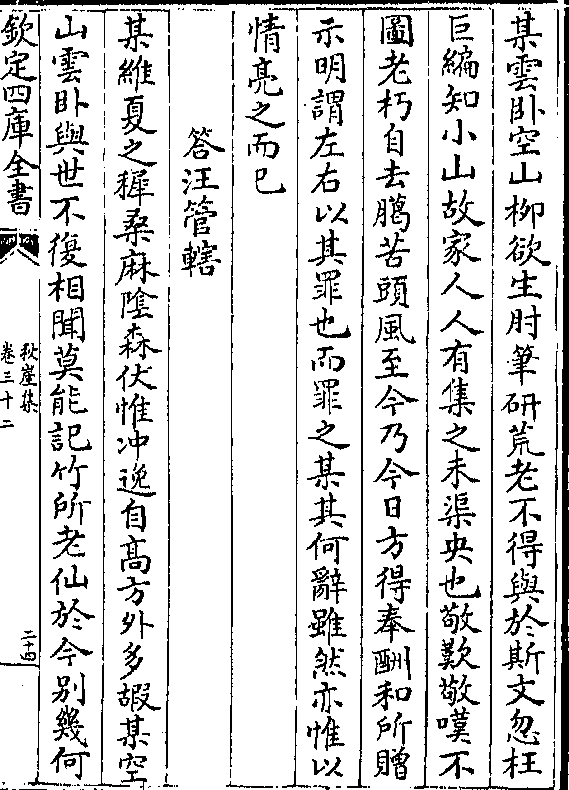 某雲卧空山柳欲生肘筆研荒老不得與於斯文忽枉
巨編知小山故家人人有集之未渠央也敬歎敬嘆不
圖老朽自去臈苦頭風至今乃今日方得奉酬和所贈
示明謂左右以其罪也而罪之某其何辭雖然亦惟以
情亮之而已
答汪管轄
某維夏之穉桑麻隂森伏惟冲逸自髙方外多嘏某空
山雲卧與世不復相聞莫能記竹所老仙於今别幾何
欽定四庫全書
秋崖集
卷三十二
二十四